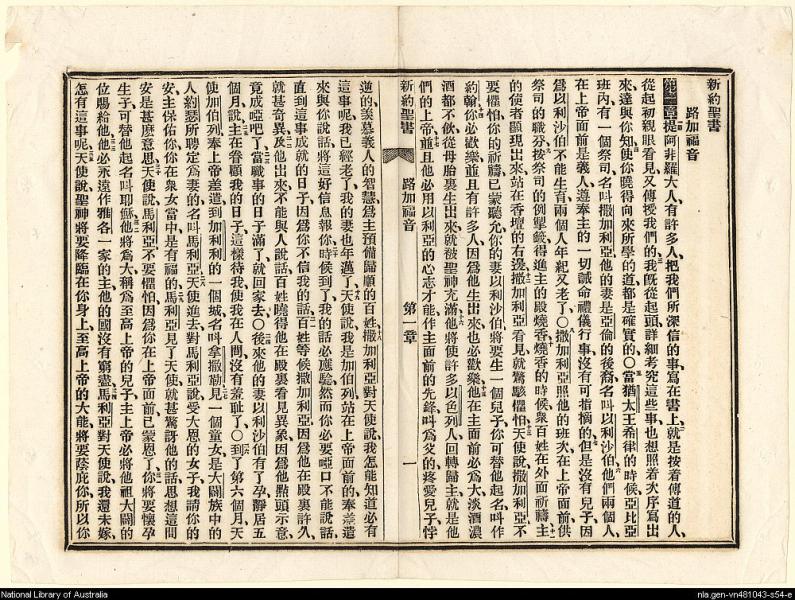 新約聖書
路加福音
第一章提阿非羅大人、有許多人、把我們所深信的事、寫在書上、就是按着傳道的人、
從起初親眼看見、又傳授我們的、我既從起頭詳細考究這些事、也想照着次序寫出
來、達與你知、使你曉得向來所學的道、都是確實的、〇當猶太王希律的時候、亞比亞
班內、有一個祭司、名叫撒加利亞、他的妻是亞倫的後裔、名叫以利沙伯、他們兩個人、
在上帝面前是義人、遵奉主的一切誡命禮儀行事、沒有可指摘的、但是沒有兒子、因
爲以利沙伯不能生育、兩個人年紀又老了、〇撒加利亞照他的班次、在上帝面前供
祭司的職分、按祭司的例掣籤、得進主的殿燒香、燒香的時候、衆百姓在外面祈禱、主
的使者顯現出來、站在香壇的右邊、撒加利亞看見、就驚駭懼怕、天使說、撒加利亞不
要懼怕、你的祈禱已蒙聽允、你的妻以利沙伯將要生一個兒子、你可替他起名叫作
約翰、你必歡樂、並且有許多人、因爲他生出來、也必歡樂、他在主面前必爲大、淡酒濃
酒都不飲、從母胎裏生出來、就被聖神充滿、他將使許多以色列人回轉歸主、就是他
們的上帝、並且他必用以利亞的心志才能、作主面前的先鋒、叫爲父的疼愛兒子、悖
新約聖書 路加福音 第一章 一
逆的羨慕義人的智慧、爲主預備歸順的百姓、撒加利亞對天使說、我怎能知道必有
這事呢、我已經老了、我的妻也年邁了、天使說、我是加伯列、站在上帝面前的、奉差遣
來與你說話、將這好信息報你、時候到了、我的話必應驗、然而你必要啞口不能說話、
直到這事成就的日子、因爲你不信我的話、百姓等候撒加利亞、因爲他在殿裏許久、
就甚奇異、及他出來、不能與人說話、百姓曉得他在殿裏看見異象、因爲他點頭示意、
竟成啞吧了、當職事的日子滿了、就回家去、〇後來他的妻以利沙伯有了孕、靜居五
個月、說、主在眷顧我的日子、這樣待我、使我在人間沒有羞恥了、〇到了第六個月、天
使加伯列、奉上帝差遣、到加利利的一個城、名叫拿撒勒、見一個童女、是大闢族中的
人、約瑟所聘定爲妻的、名叫馬利亞、天使進去、對馬利亞說、受大恩的女子、我請你的
安、主保佑你、你在衆女當中是有福的、馬利亞見了天使、就甚驚訝他的話、思想這問
安是甚麼意思、天使說、馬利亞不要懼怕、因爲你在上帝面前、已蒙恩了、你將要懷孕
生子、可替他起名叫耶穌、他將爲大、稱爲至高上帝的兒子、主上帝必將他祖大闢的
位賜給他、他必永遠作雅各一家的主、他的國沒有窮盡、馬利亞對天使說、我還未嫁、
怎有這事呢、天使說、聖神將要降臨在你身上、至高上帝的大能、將要蔭庇你、所以你
National Library of Australia
nla.gen-vn481043-s54-e